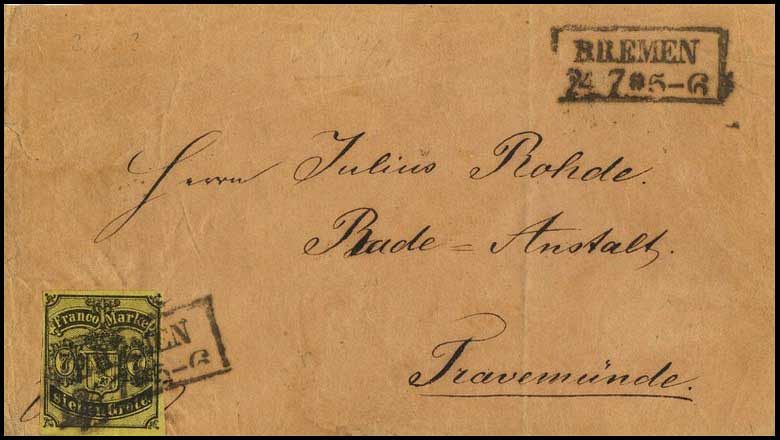 BREMEN
24 7 * 5-6
Herrn Julius Rohde.
Bade=Anstalt.
Travemünde.
Franco Marke
7 7
Sieben Grote.
EN
5-6